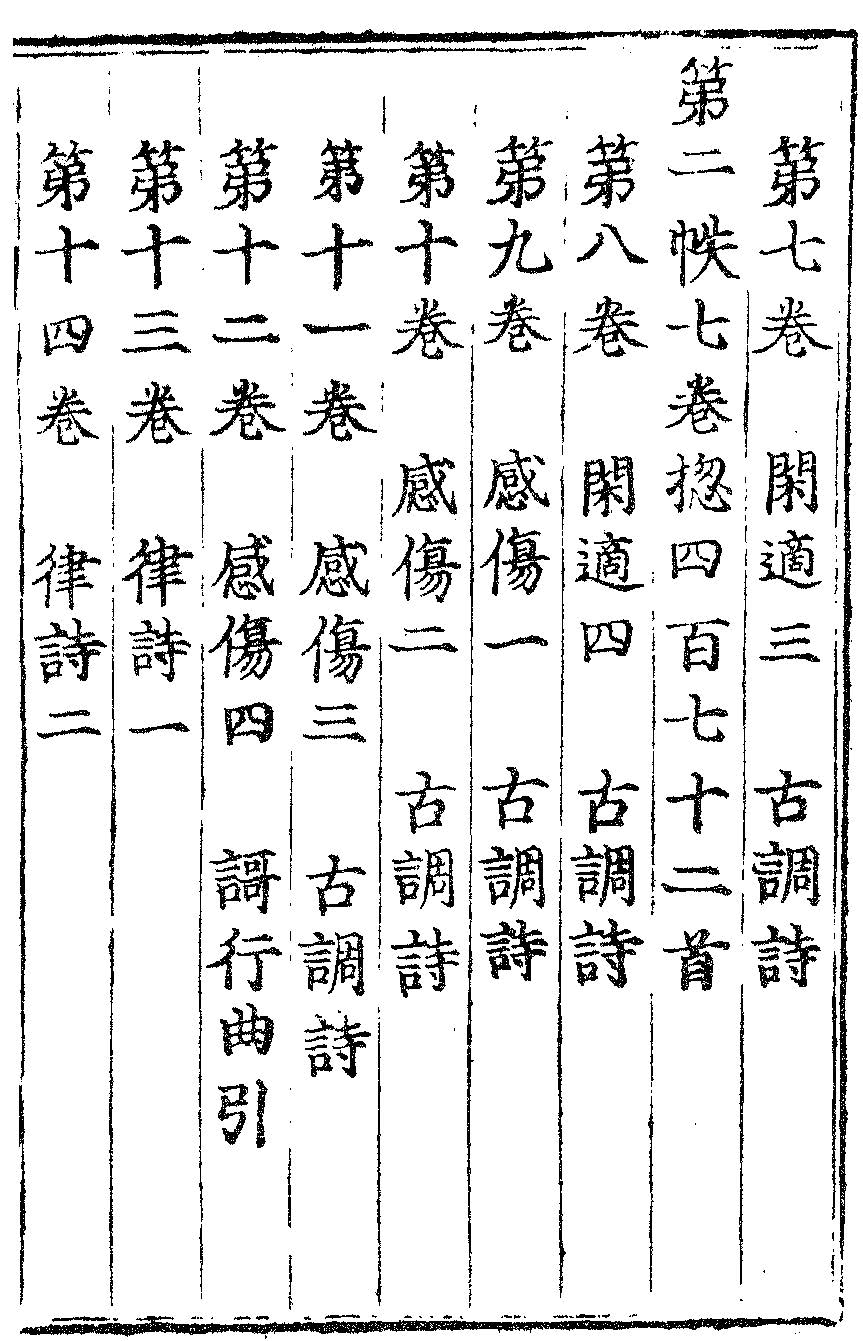 第七卷　閑適三　古調詩
第二帙七卷揔四百七十二首
第八卷　閑適四　古調詩
第九卷　感傷一　古調詩
第十卷　感傷二　古調詩
第十一卷　感傷三　古調詩
第十二卷　感傷四　謌行曲引
第十三卷　律詩一
第十四卷　律詩二